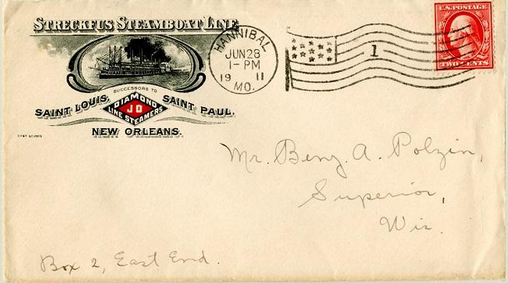 STRECKFUS STEAMBOAT LINE
SUCCESSORS TO
SAINT LOUIS,
DIAMOND
JO
LINE STEAMERS
SAINT PAUL.
NEW ORLEANS.
HANNIBAL
JUN 28
1-PM
19 11
MO.
1
U.S. POSTAGE
TWO CENTS
Mr. Benj. A. Polzin,
Superior,
Wis.
Box 2, East End.